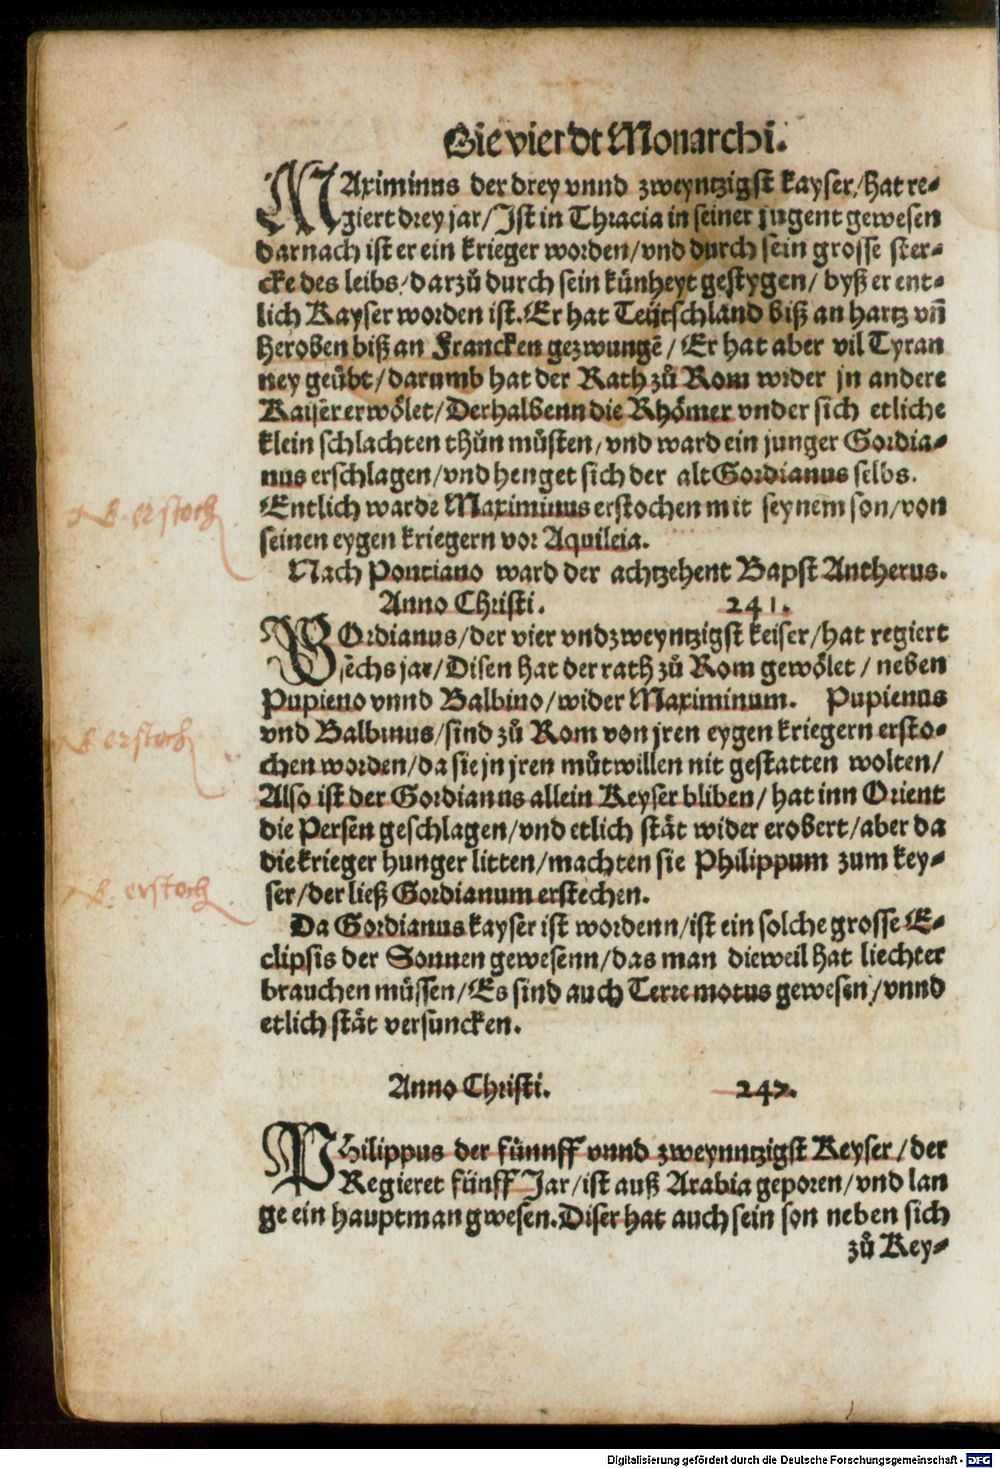 Die vierdt Monarchi.
MAximinus der drey vnnd zweyntzigst kayser/hat re-
giert drey jar/Jst in Thracia in seiner jugent gewesen
darnach ist er ein krieger worden/vnd durch sein grosse ster-
cke des leibs/darzů durch sein künheyt gestygen/ byß er ent-
lich Kayser worden ist. Er hat Teütschland biß an hartz vn̄
heroben biß an Francken gezwungē/Er hat aber vil Tyran
ney geübt/darumb hat der Rath zů Rom wider jn andere
Kaiser erwölet/Derhalbenn die Rhömer vnder sich etliche
klein schlachten thůn müsten/vnd ward ein junger Gordia-
nus erschlagen/vnd henget sich der alt Gordianus selbs.
Entlich warde Maximinus erstochen mit seynem son/von
seinen eygen kriegern vor Aquileia.
N. erstoch
Nach Pontiano ward der achtzehent Bapst Antherus.
Anno Christi. 241.
GOrdianus/der vier vnd zweyntzigst keiser/hat regiert
sechs jar/Disen hat der rath zů Rom gewölet/ neben
Pupieno vnnd Balbino/wider Maximinum. Pupienus
vnd Balbinus/sind zů Rom von jren eygen kriegern ersto-
chen worden/da sie jn jren můtwillen nit gestatten wolten/
N. erstoch
Also ist der Gordianus allein Keyser bliben/hat inn Orient
die Persen geschlagen/vnd etlich stät wider erobert/aber da
die krieger hunger litten/machten sie Philippum zum key-
ser/der ließ Gordianum erstechen.
N. erstoch
Da Gordianus kayser ist wordenn/ist ein solche grosse E-
clipsis der Sonnen gewesenn/das man dieweil hat liechter
brauchen müssen/Es sind auch Terre motus gewesen/vnnd
etlich stät versuncken.
Anno Christi. 247.
PHilippus der fünnff vnnd zweynntzigst Keyser/der
Regieret fünff Jar/ist auß Arabia geporen/vnd lan
ge ein hauptman gwesen. Diser hat auch sein son neben sich
zů Key-
Digitalisierung gefördert durch die Deutsche Forschungsgemeinschaft - DFG